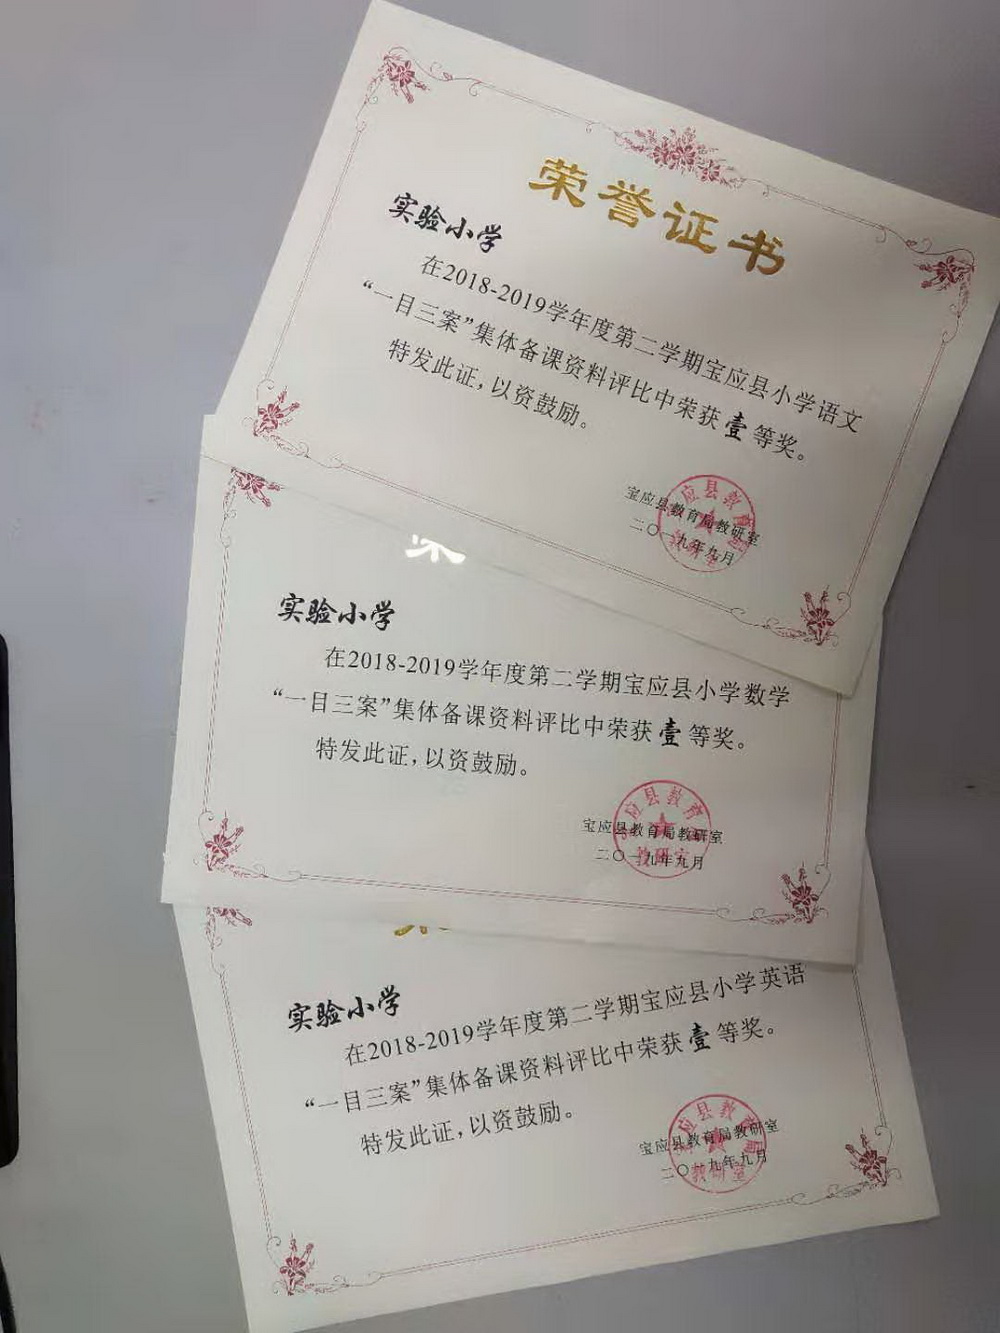 荣誉证书
实验小学
在2018-2019学年度第二学期宝应县小学语文
“一目三案”集体备课资料评比中荣获壹等奖。
特发此证,以资鼓励。
宝应县教育局教研室
二〇一九年九月
实验小学
在2018-2019学年度第二学期宝应县小学数学
“一目三案”集体备课资料评比中荣获壹等奖。
特发此证,以资鼓励。
宝应县教育局教研室
二〇一九年九月
实验小学
在2018-2019学年度第二学期宝应县小学英语
“一目三案”集体备课资料评比中荣获壹等奖。
特发此证,以资鼓励。
宝应县教育局教研室
二〇一九年九月